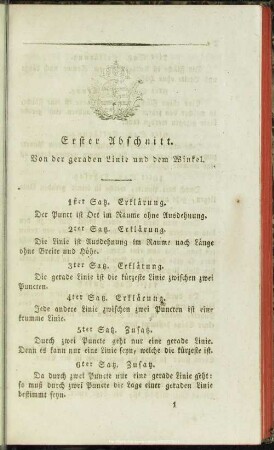 Erster Abschnitt.
Von der geraden Linie und dem Winkel.
1ster Satz. Erklärung.
Der Punct ist Ort im Raume ohne Ausdehnung.
2ter Satz. Erklärung.
Die Linie ist Ausdehnung im Raume nach Länge
ohne Breite und Höhe.
3ter Satz. Erklärung.
Die gerade Linie ist die kürzeste Linie zwischen zwei
Puncten.
4ter Satz. Erklärung.
Jede andere Linie zwischen zwei Puncten ist eine
krumme Linie.
5ter Satz. Zusatz.
Durch zwei Puncte geht nur eine gerade Linie.
Denn es kann nur eine Linie seyn, welche die kürzeste ist.
6ter Satz. Zusatz.
Da durch zwei Puncte nur eine gerade Linie geht:
so muß durch zwei Puncte die Lage einer geraden Linie
bestimmt seyn.
1